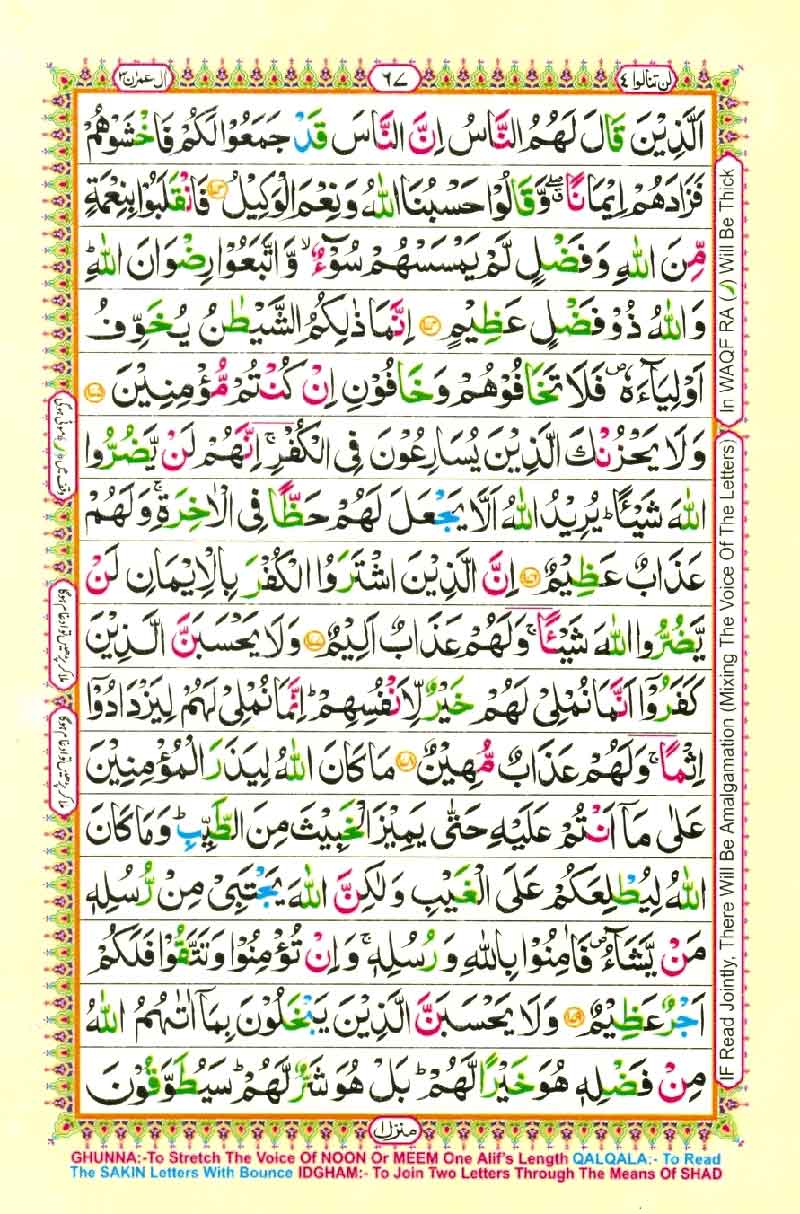 لن تنالوا ٤
٦٧
اٰل عمرٰن ٣
الَّذِیْنَ قَالَ لَهُمُ النَّاسُ اِنَّ النَّاسَ قَدْ جَمَعُوْا لَكُمْ فَاخْشَوْهُمْ
فَزَادَهُمْ اِیْمَانًا ۖۗ وَّقَالُوْا حَسْبُنَا اللّٰهُ وَنِعْمَ الْوَكِیْلُ ﴿۱۷۳﴾ فَانْقَلَبُوْا بِنِعْمَةٍ
مِّنَ اللّٰهِ وَفَضْلٍ لَّمْ یَمْسَسْهُمْ سُوْٓءٌ ۙ وَّاتَّبَعُوْا رِضْوَانَ اللّٰهِ ؕ
وَاللّٰهُ ذُوْ فَضْلٍ عَظِیْمٍ ﴿۱۷۴﴾ اِنَّمَا ذٰلِكُمُ الشَّیْطٰنُ یُخَوِّفُ
اَوْلِیَآءَهٗ ۪ فَلَا تَخَافُوْهُمْ وَخَافُوْنِ اِنْ كُنْتُمْ مُّؤْمِنِیْنَ ﴿۱۷۵﴾
وَلَا یَحْزُنْكَ الَّذِیْنَ یُسَارِعُوْنَ فِی الْكُفْرِ ۚ اِنَّهُمْ لَنْ یَّضُرُّوا
اللّٰهَ شَیْـًٔا ؕ یُرِیْدُ اللّٰهُ اَلَّا یَجْعَلَ لَهُمْ حَظًّا فِی الْاٰخِرَةِ ۚ وَلَهُمْ
عَذَابٌ عَظِیْمٌ ﴿۱۷۶﴾ اِنَّ الَّذِیْنَ اشْتَرَوُا الْكُفْرَ بِالْاِیْمَانِ لَنْ
یَّضُرُّوا اللّٰهَ شَیْـًٔا ۚ وَلَهُمْ عَذَابٌ اَلِیْمٌ ﴿۱۷۷﴾ وَلَا یَحْسَبَنَّ الَّذِیْنَ
كَفَرُوْۤا اَنَّمَا نُمْلِیْ لَهُمْ خَیْرٌ لِّاَنْفُسِهِمْ ؕ اِنَّمَا نُمْلِیْ لَهُمْ لِیَزْدَادُوْۤا
اِثْمًا ۚ وَلَهُمْ عَذَابٌ مُّهِیْنٌ ﴿۱۷۸﴾ مَا كَانَ اللّٰهُ لِیَذَرَ الْمُؤْمِنِیْنَ
عَلٰی مَاۤ اَنْتُمْ عَلَیْهِ حَتّٰی یَمِیْزَ الْخَبِیْثَ مِنَ الطَّیِّبِ ؕ وَمَا كَانَ
اللّٰهُ لِیُطْلِعَكُمْ عَلَی الْغَیْبِ وَلٰكِنَّ اللّٰهَ یَجْتَبِیْ مِنْ رُّسُلِهٖ
مَنْ یَّشَآءُ ۪ فَاٰمِنُوْا بِاللّٰهِ وَرُسُلِهٖ ۚ وَاِنْ تُؤْمِنُوْا وَتَتَّقُوْا فَلَكُمْ
اَجْرٌ عَظِیْمٌ ﴿۱۷۹﴾ وَلَا یَحْسَبَنَّ الَّذِیْنَ یَبْخَلُوْنَ بِمَاۤ اٰتٰىهُمُ اللّٰهُ
مِنْ فَضْلِهٖ هُوَ خَیْرًا لَّهُمْ ؕ بَلْ هُوَ شَرٌّ لَّهُمْ ؕ سَیُطَوَّقُوْنَ
منزل ١
In WAQF RA (ر) Will Be Thick
IF Read Jointly, There Will Be Amalgamation (Mixing The Voice Of The Letters)
GHUNNA:-To Stretch The Voice Of NOON Or MEEM One Alif's Length QALQALA:- To Read
The SAKIN Letters With Bounce IDGHAM:- To Join Two Letters Through The Means Of SHAD